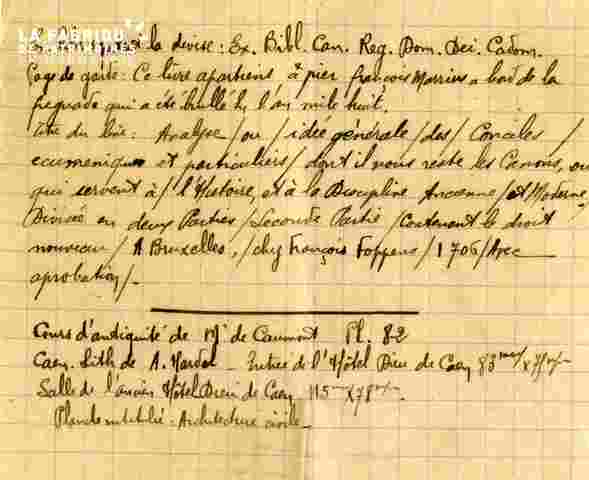 LA FABRIQUE
DE PATRIMOINES
la devise: Ex. Bibl. Can. Reg. Dom. Dei. Cadom.
Page de garde: Ce livre apartiens à pier françois Marrius a bord de la
freguade qui a été brullé h, l'an mile huit.
titre du livre: Analyse/ou/idée générale/des/Conciles/
œcumeniques et particuliers/dont il nous reste les Canons, ou
qui servent à/l'Histoire, et à la Discipline Ancienne/et Moderne,
Divisée en deux Parties/Seconde Partie/Contenant le droit
nouveau/A Bruxelles,/chez François Foppens/1706/Avec
aprobation/-
Cours d'antiquité de Mr de Caumont Pl. 82
Caen. Lith de A. Hardel _ Entrée de l'Hôtel Dieu de Caen 83 m/m x
Salle de l'ancien Hôtel Dieu de Caen 115 m/m x 78 m/m.
Planche intitulée: Architecture civile_